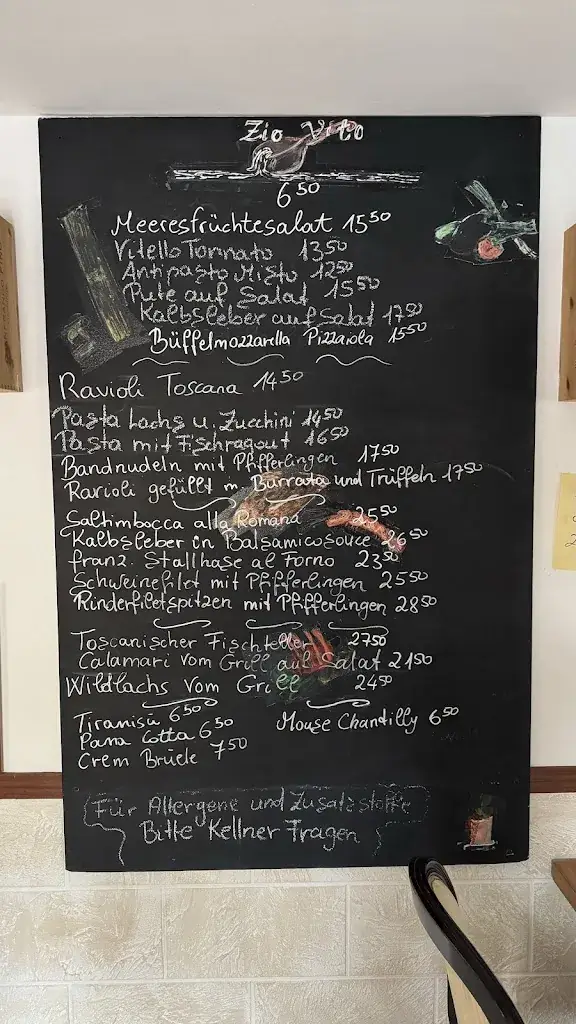 Zio Vito
6 50
Meeresfrüchtesalat 15 50
Vitello Tonnato 13 50
Antipasto Misto 12 50
Pute auf Salat 15 50
Kalbsleber auf Salat 17 50
Büffelmozzarella Pizzaiola 15 50
Ravioli Toscana 14 50
Pasta Lachs u. Zucchini 14 50
Pasta mit Fischragout 16 50
Bandnudeln mit Pfifferlingen 17 50
Ravioli gefüllt m. Burrata und Trüffeln 17 50
Saltimbocca alla Romana 25 50
Kalbsleber in Balsamicosouce 26 50
franz. Stallhase al Forno 23 50
Schweinefilet mit Pfifferlingen 25 50
Rinderfiletspitzen mit Pfifferlingen 28 50
Toscanischer Fischteller 27 50
Calamari vom Grill auf Salat 21 50
Wildlachs vom Grill 24 50
Tiramisu 6 50
Mouse Chantilly 6 50
Pana Cotta 6 50
Crem Bruele 7 50
Für Allergene und Zusatzstoffe
Bitte Kellner Fragen